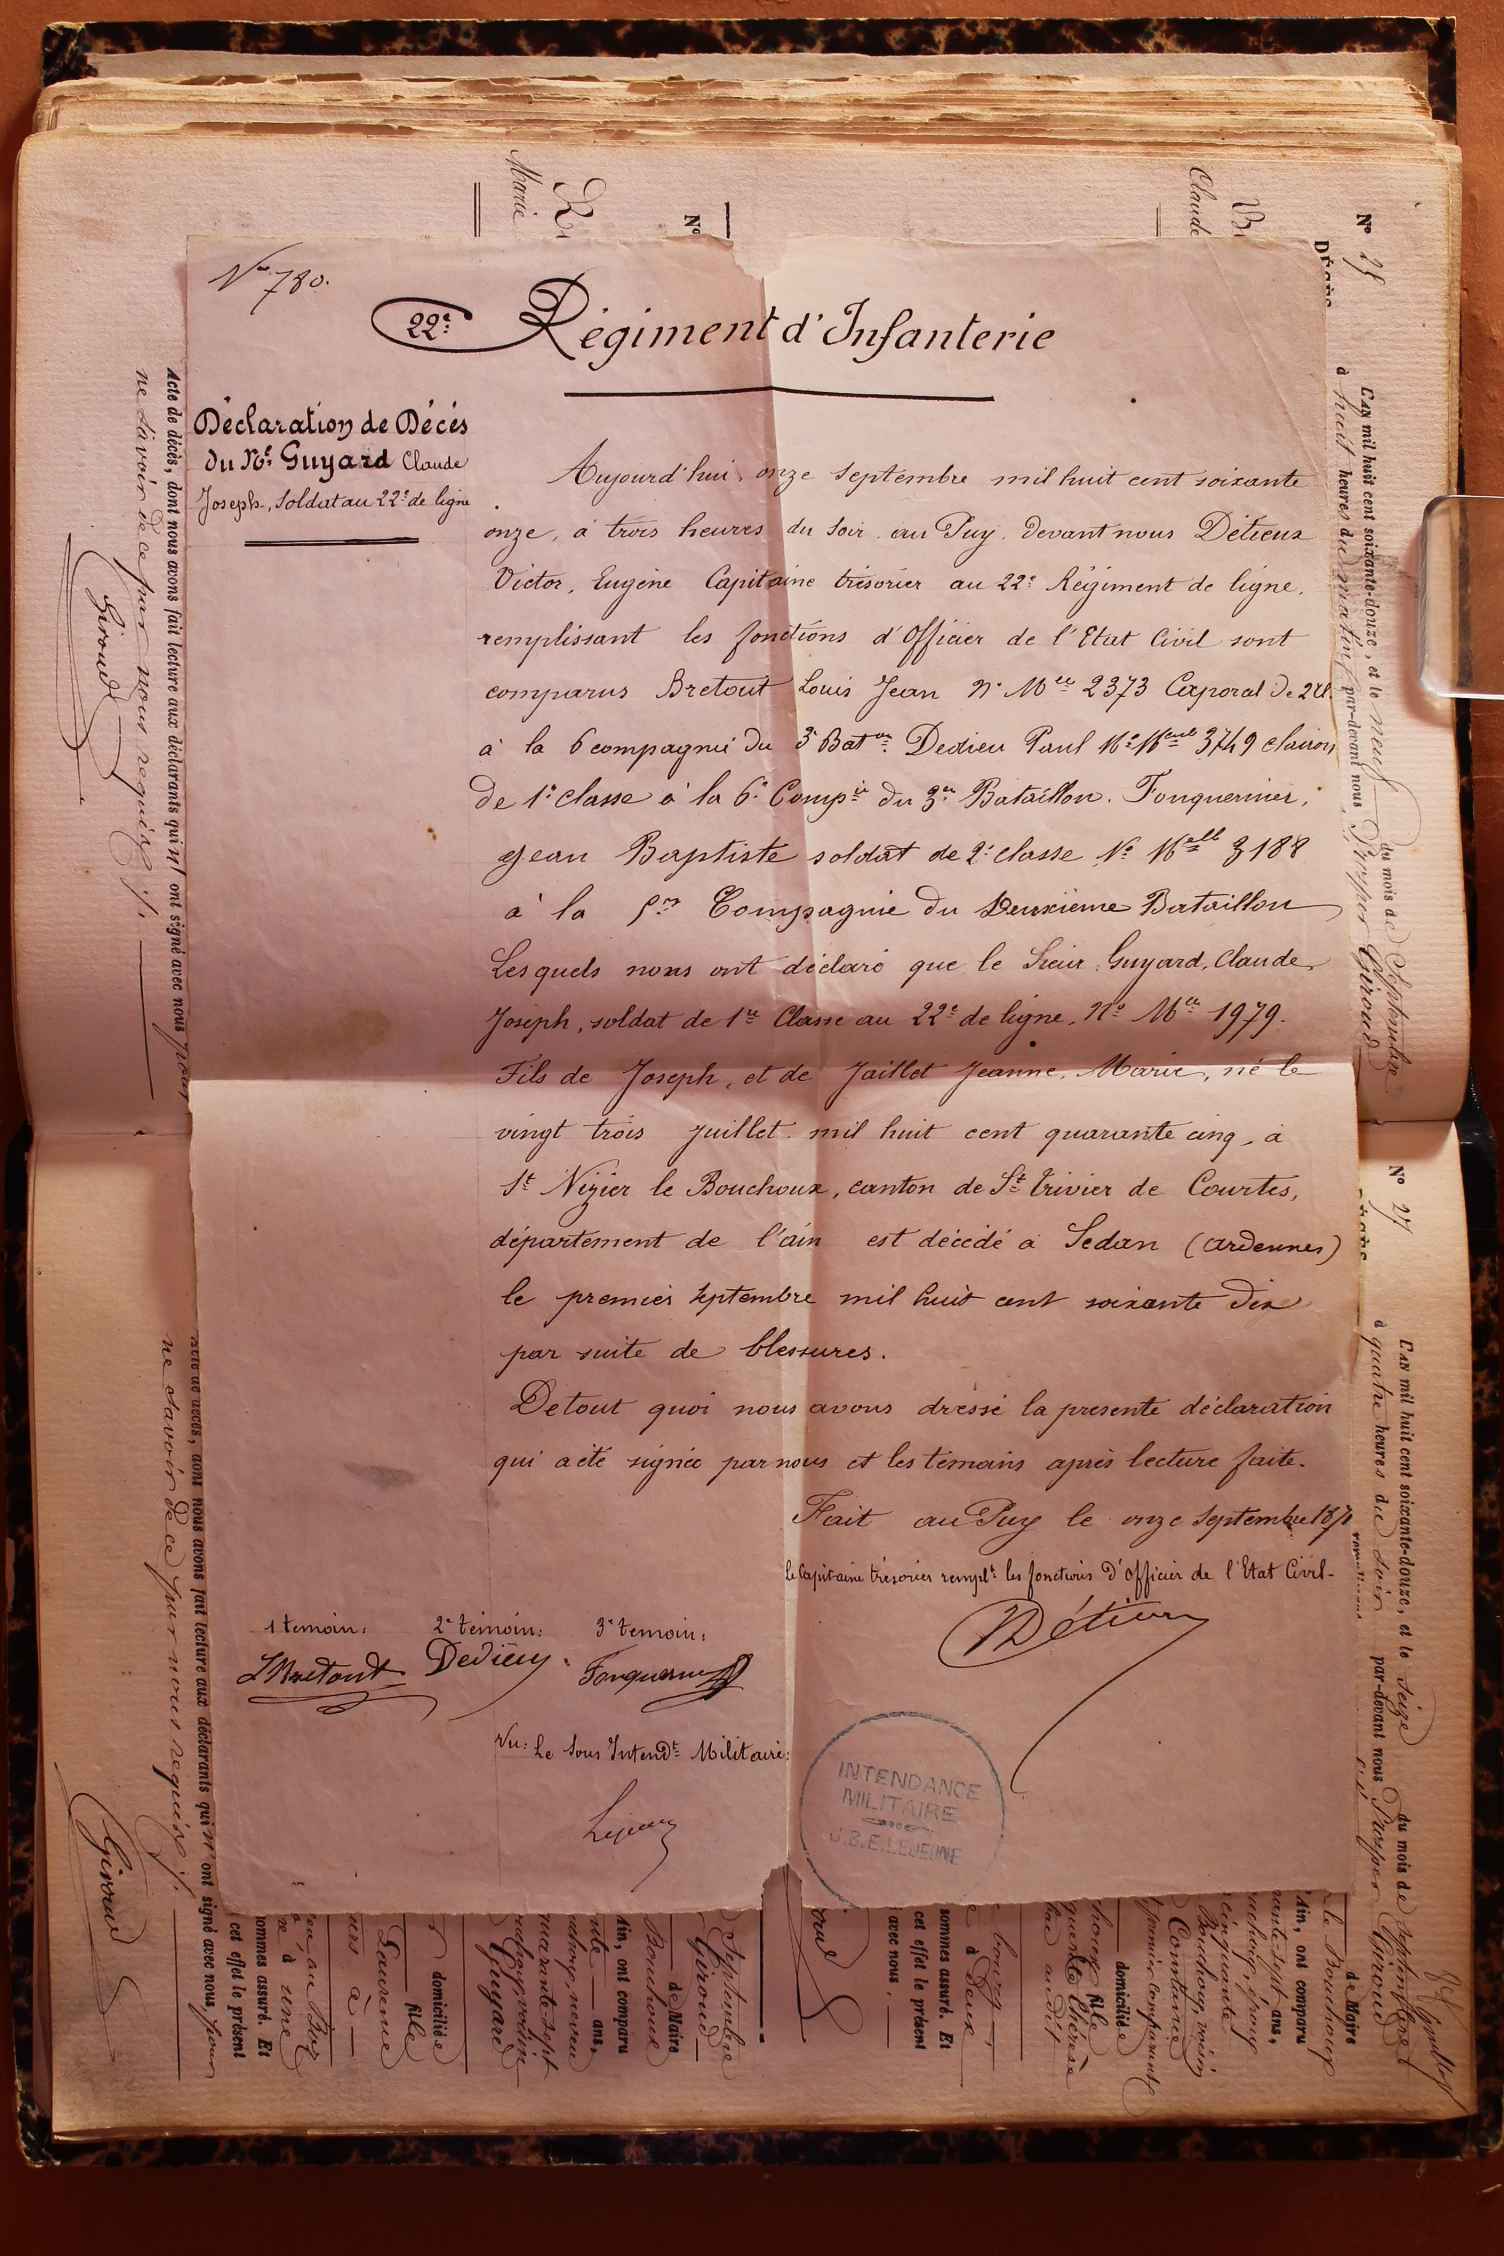 No 780.
22e Régiment d'Infanterie
Déclaration de Décès
du Né Guyard Claude
Joseph, soldat au 22e de ligne
Aujourd'hui onze septembre mil huit cent soixante
onze, à trois heures du soir au Puy, devant nous Détieux
Victor, Eugène Capitaine trésorier au 22e Régiment de ligne,
remplissant les fonctions d'Officier de l'Etat Civil sont
comparus Bretout Louis Jean No Mle 2373 Caporal de 2
à la 6 compagnie du 3e Baton Dedieu Paul No Mcule 3749 clairon
de 1e classe à la 6e Compie du 3me Bataillon. Fonquernier,
Jean Baptiste soldat de 2e classe No Melle 3188
à la 5me Compagnie du Deuxième Bataillon
Lesquels nous ont déclaré que le Sieur Guyard, Claude,
Joseph, soldat de 1re Classe au 22e de ligne, No Mle 1979.
Fils de Joseph, et de Jaillet Jeanne, Marie, né le
vingt trois juillet mil huit cent quarante cinq, à
St Nizier le Bouchoux, canton de St trivier de Courtes,
département de l'ain est décédé à Sedan (ardennes)
le premier septembre mil huit cent soixante dix
par suite de blessures.
De tout quoi nous avons dressé la presente déclaration
qui a été signée par nous et les témoins après lecture faite.
Fait au Puy le onze septembre 1871
Le Capitaine trésorier remplt les fonctions d'Officier de l'Etat Civil-
VDétieux
1 temoin: 2e témoin: 3e temoin:
LBretout Dedieu Fonquernier
Vu: Le Sous Intendt Militaire:
Lejeune
INTENDANCE
MILITAIRE
J.B.E. LEJEUNE
No 25
Décès
L'AN mil huit cent soixante-douze, et le neuf du mois de Septembre
à huit heures du matin par-devant nous, Prosper Giroud
No 27
L'AN mil huit cent soixante-douze, et le seize du mois de septembre
à quatre heures du soir par-devant nous Prosper Giroud
de Maire
le Bouchoux
Ain, ont comparu
ans,
domicilié
fille
sommes assuré. Et
cet effet le présent
avec nous,
No
Marie
Claude
Septembre
Giroud
de Maire
Bouchoux
Ain, ont comparu
ans,
quarante sept
Guyard
domicilié
fille
Laurence
sommes assuré. Et
cet effet le présent
Acte de décès, dont nous avons fait lecture aux déclarants qui n'ont signé avec nous pour
ne savoir de ce par nous requis /.
Giroud
Acte de décès, dont nous avons fait lecture aux déclarants qui n'ont signé avec nous, pour
ne savoir de ce par nous requis /.
Giroud